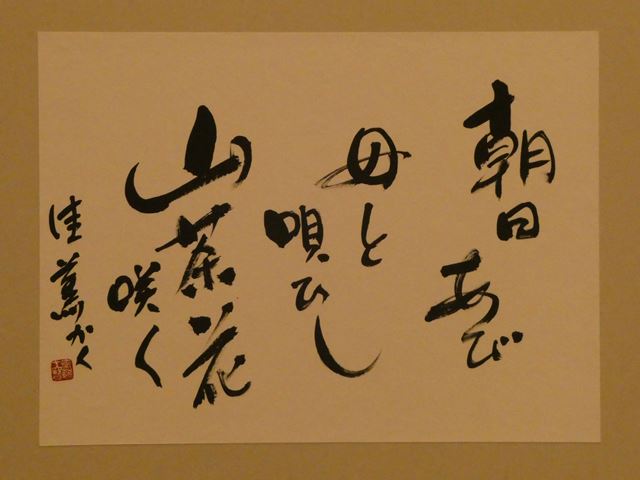 朝日あび
母と
唄ひし
山茶花
咲く
佳薫かく